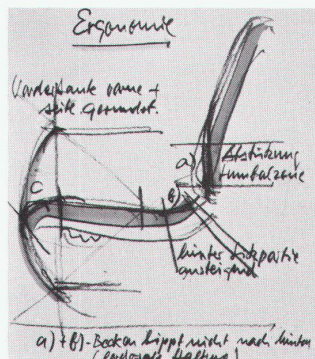 Ergonomie
Vorderkante vorne +
seitl. gerundet.
a)
Abstützung
Lumbalzone
b)
C
hinter Sitzpartie
ansteigend
a) + b) - Becken kippt nicht nach hinten
Haltung)